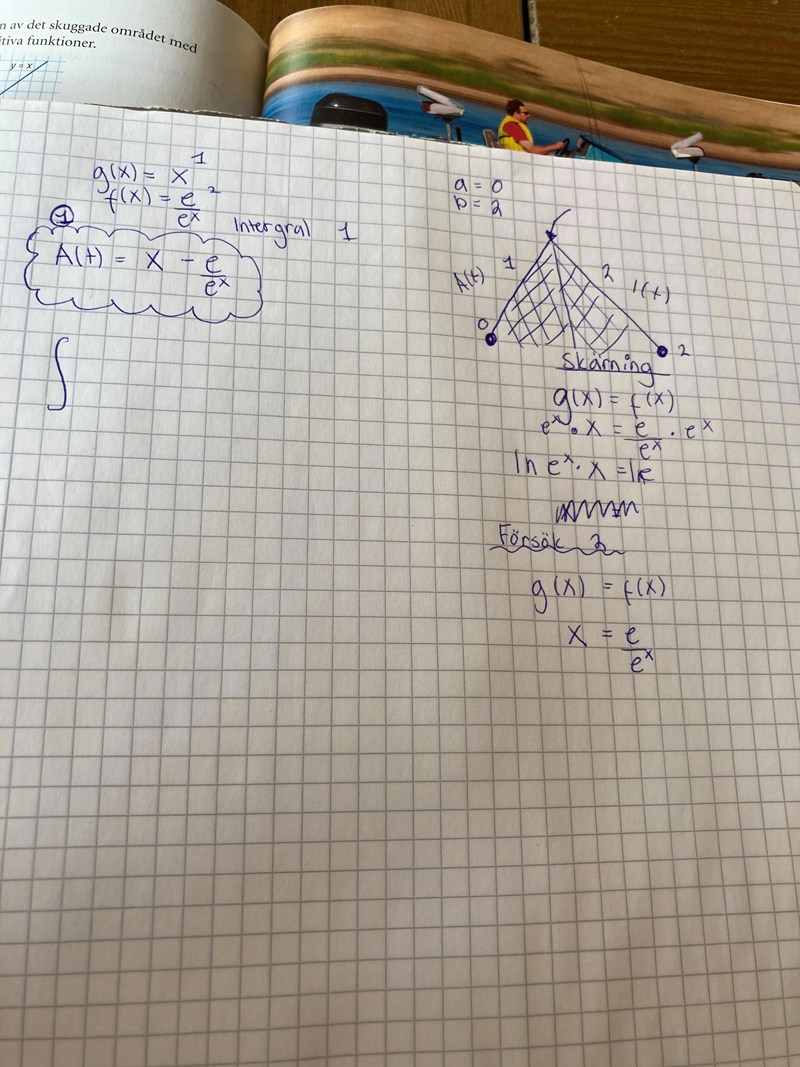 n av det skuggade området med
itiva funktioner.
y = x
g(x) = x 1
f(x) = e/e^x 2
1
Intergral 1
A(t) = x - e/e^x
∫
a = 0
b = 2
A(t) 1
2
0
2
Skärning
g(x) = f(x)
e^x · x = e/e^x · e^x
Försök 2
g(x) = f(x)
x = e/e^x